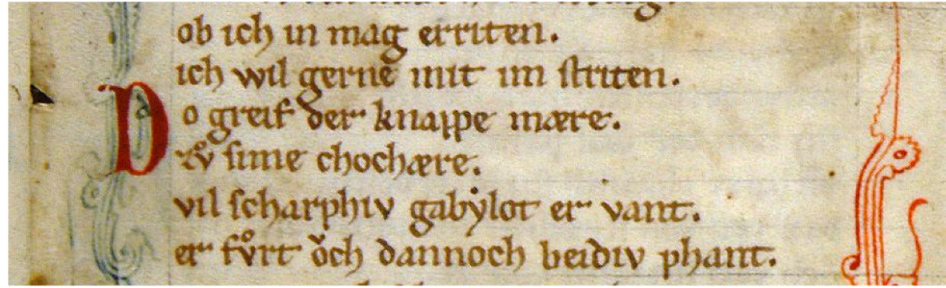 ob ich in mag erriten.
ich wil gerne mit im ſtriten.
Do greif der knappe mære.
zv̊ ſime chochære.
vil ſcharphiv gabẏlot er vant.
er fv̊rt ǒch dannoch beidiv phant.